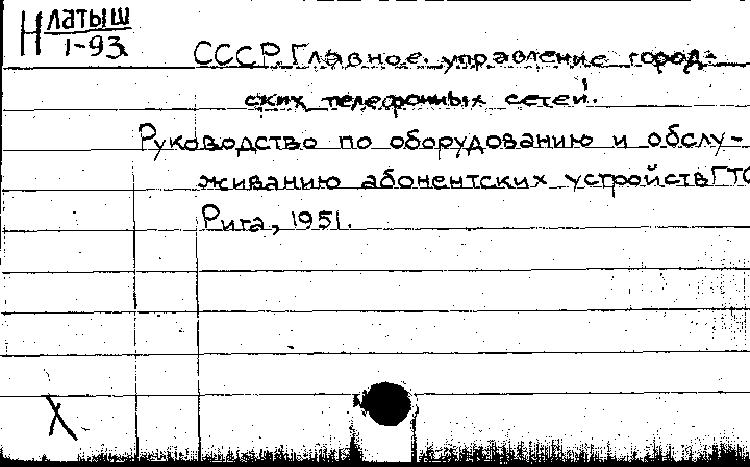 Н латыш
1-93
СССР. Главное управление город-
ских телефонных сетей.
Руководство по оборудованию и обслу-
живанию абонентских устройств ГТС
Рига, 1951.
X